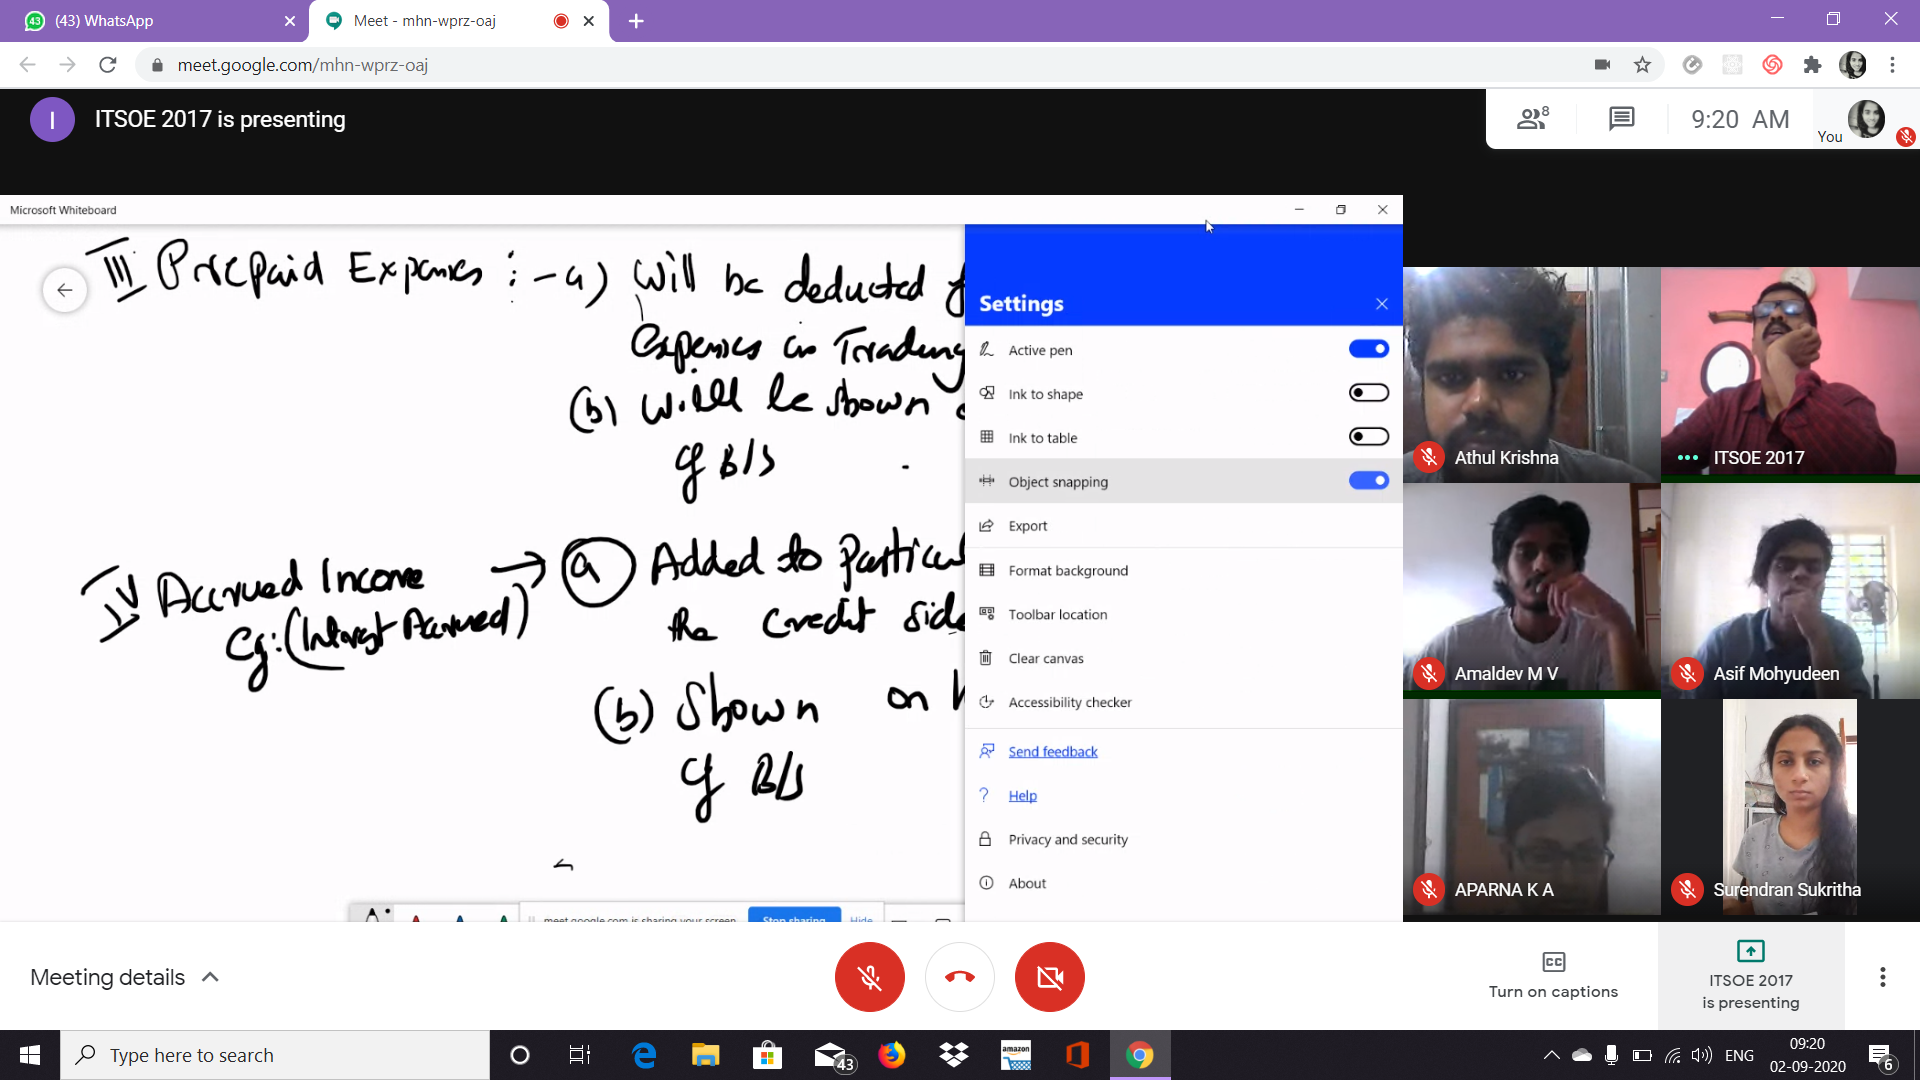 43
(43) WhatsApp
Meet - mhn-wprz-oaj
meet.google.com/mhn-wprz-oaj
I
ITSOE 2017 is presenting
8
9:20 AM
You
Microsoft Whiteboard
III Prepaid Expenses :- a) Will be deducted f
Expenses in Trading
(b) Will be shown
of B/S
IV Accrued Income → (a) Added to particul
Eg: (Interest Accrued) the credit side
(b) Shown on
of B/S
Settings
Active pen
Ink to shape
Ink to table
Object snapping
Export
Format background
Toolbar location
Clear canvas
Accessibility checker
Send feedback
Help
Privacy and security
About
meet.google.com is sharing your screen
Stop sharing
Hide
Athul Krishna
ITSOE 2017
Amaldev M V
Asif Mohyudeen
APARNA K A
Surendran Sukritha
Meeting details
CC
Turn on captions
ITSOE 2017
is presenting
Type here to search
43
amazon
ENG
09:20
02-09-2020
6